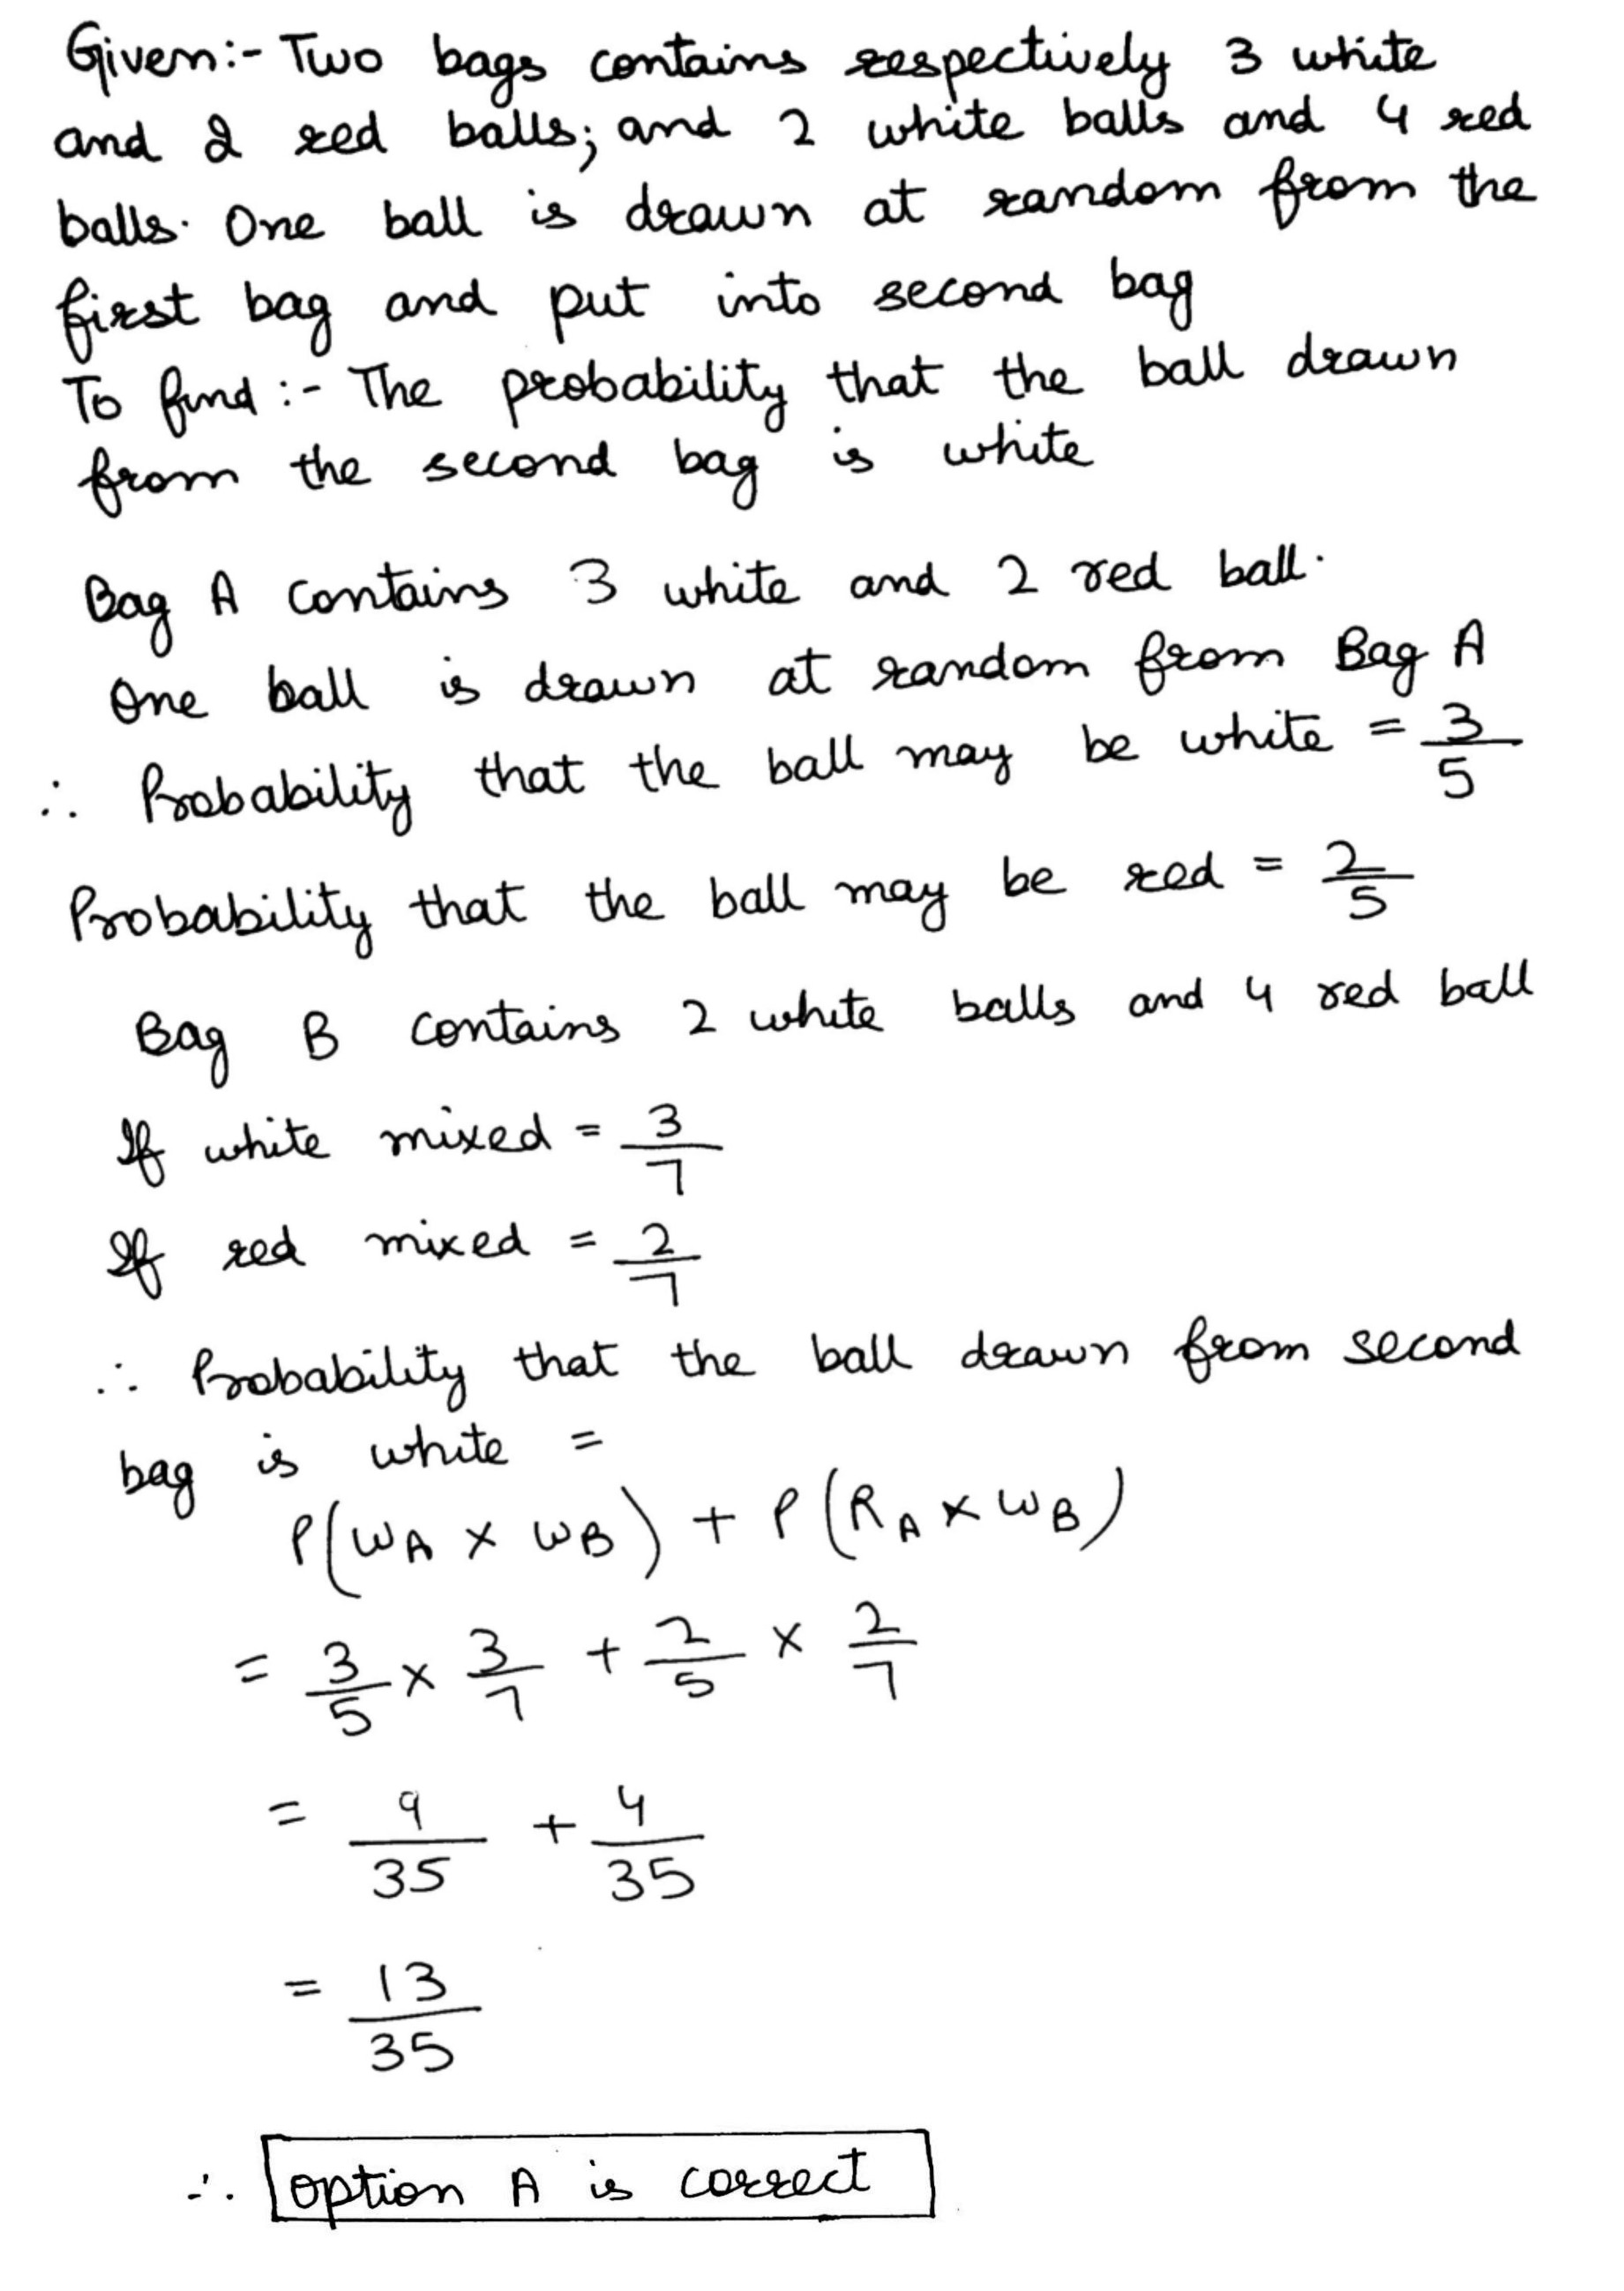 Given:- Two bags contains respectively 3 white
and 2 red balls; and 2 white balls and 4 red
balls. One ball is drawn at random from the
first bag and put into second bag
To find :- The probability that the ball drawn
from the second bag is white
Bag A contains 3 white and 2 red ball.
One ball is drawn at random from Bag A
∴ Probability that the ball may be white = 3/5
Probability that the ball may be red = 2/5
Bag B contains 2 white balls and 4 red ball
If white mixed = 3/7
If red mixed = 2/7
∴ Probability that the ball drawn from second
bag is white =
P(W_A × W_B) + P(R_A × W_B)
= 3/5 × 3/7 + 2/5 × 2/7
= 9/35 + 4/35
= 13/35
∴ option A is correct